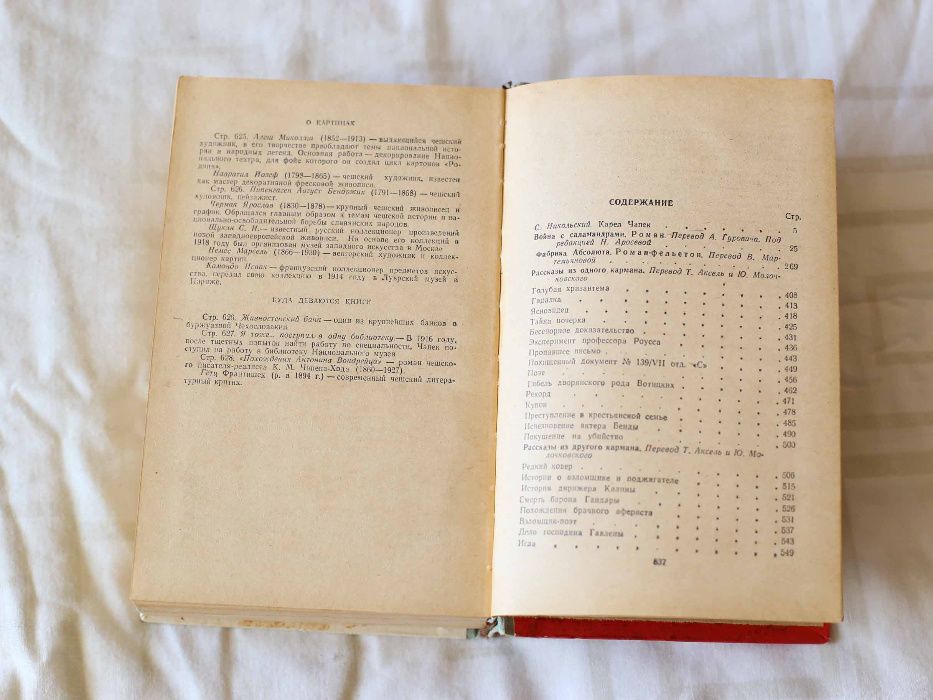 О КАРТИНАХ
Стр. 625. Алеш Миколаш (1852—1913) — выдающийся чешский
художник, в его творчестве преобладают темы национальной исто-
рии и народных легенд. Основная работа — декорирование Нацио-
нального театра, для фойе которого он создал цикл картонов «Ро-
дина».
Навратил Йозеф (1798—1865) — чешский художник, известен
как мастер декоративной фресковой живописи.
Стр. 626. Пипенгаген Август Бедржих (1791—1868) — чешский
художник, пейзажист.
Чермак Ярослав (1830—1878) — крупный чешский живописец и
график. Обращался главным образом к темам чешской истории и на-
ционально-освободительной борьбы славянских народов.
Щукин С. И. — известный русский коллекционер произведений
новой западноевропейской живописи. На основе его коллекций в
1918 году был организован музей западного искусства в Москве.
Немес Марсель (1866—1930) — венгерский художник и коллек-
ционер картин.
Камондо Исаак — французский коллекционер предметов искус-
ства, передал свою коллекцию в 1914 году в Луврский музей в
Париже.
КУДА ДЕВАЮТСЯ КНИГИ
Стр. 626. Живностенский банк — один из крупнейших банков в
буржуазной Чехословакии
Стр. 627. Я тоже.. поступил в одну библиотеку. — В 1916 году,
после тщетных попыток найти работу по специальности, Чапек по-
ступил на работу в библиотеку Национального музея
Стр. 628. «Похождения Антонина Вондрейца» — роман чешско-
го писателя-реалиста К. М. Чапека-Хода (1860—1927).
Гетц Франтишек (р. в 1894 г.) — современный чешский литера-
турный критик.
СОДЕРЖАНИЕ
Стр.
С. Никольский Карел Чапек . . . . . . . 5
Война с саламандрами. Роман. Перевод А. Гуровича. Под
редакцией Н. Аросевой . . . . . . . 25
Фабрика Абсолюта. Роман-фельетон. Перевод В. Мар-
темьяновой . . . . . . . 269
Рассказы из одного кармана. Перевод Т. Аксель и Ю. Молоч-
ковского
Голубая хризантема . . . . . . . 408
Гадалка . . . . . . . 413
Ясновидец . . . . . . . 418
Тайна почерка . . . . . . . 425
Бесспорное доказательство . . . . . . . 431
Эксперимент профессора Роусса . . . . . . . 436
Пропавшее письмо . . . . . . . 443
Похищенный документ № 139/VII отд. «С» . . . . . . . 449
Поэт . . . . . . . 456
Гибель дворянского рода Вотицких . . . . . . . 462
Рекорд . . . . . . . 471
Купон . . . . . . . 478
Преступление в крестьянской семье . . . . . . . 485
Исчезновение актера Бенды . . . . . . . 490
Покушение на убийство . . . . . . . 500
Рассказы из другого кармана. Перевод Т. Аксель и Ю. Мо-
лочковского
Редкий ковер . . . . . . . 506
Истории о взломщике и поджигателе . . . . . . . 515
История дирижера Калины . . . . . . . 521
Смерть барона Гандары . . . . . . . 526
Похождения брачного афериста . . . . . . . 531
Взломщик-поэт . . . . . . . 537
Дело господина Гавлены . . . . . . . 543
Игла . . . . . . . 549
637